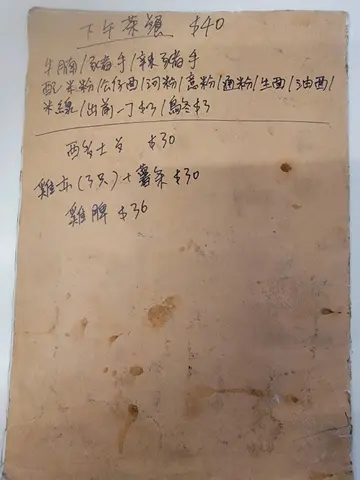 下午茶餐 $40
牛腩/豬手/辣豬手
配米粉/公仔面/河粉/意粉/通粉/生面/油面/
米線/出前一丁$3/烏冬$3
西多士 $30
雞亦(3只)+薯条$30
雞脾 $36